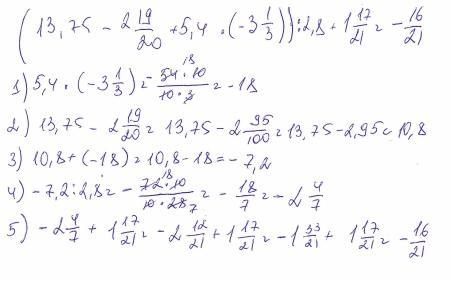 (13,75 - 2 19/20 + 5,4 · (-3 1/3)) : 2,8 + 1 17/21 = - 16/21
1) 5,4 · (-3 1/3) = - 54 · 10 / 10 · 3 = - 18
2) 13,75 - 2 19/20 = 13,75 - 2 95/100 = 13,75 - 2,95 = 10,8
3) 10,8 + (-18) = 10,8 - 18 = - 7,2
4) - 7,2 : 2,8 = - 72 · 10 / 10 · 28 = - 18/7 = - 2 4/7
5) - 2 4/7 + 1 17/21 = - 2 12/21 + 1 17/21 = - 1 33/21 + 1 17/21 = - 16/21